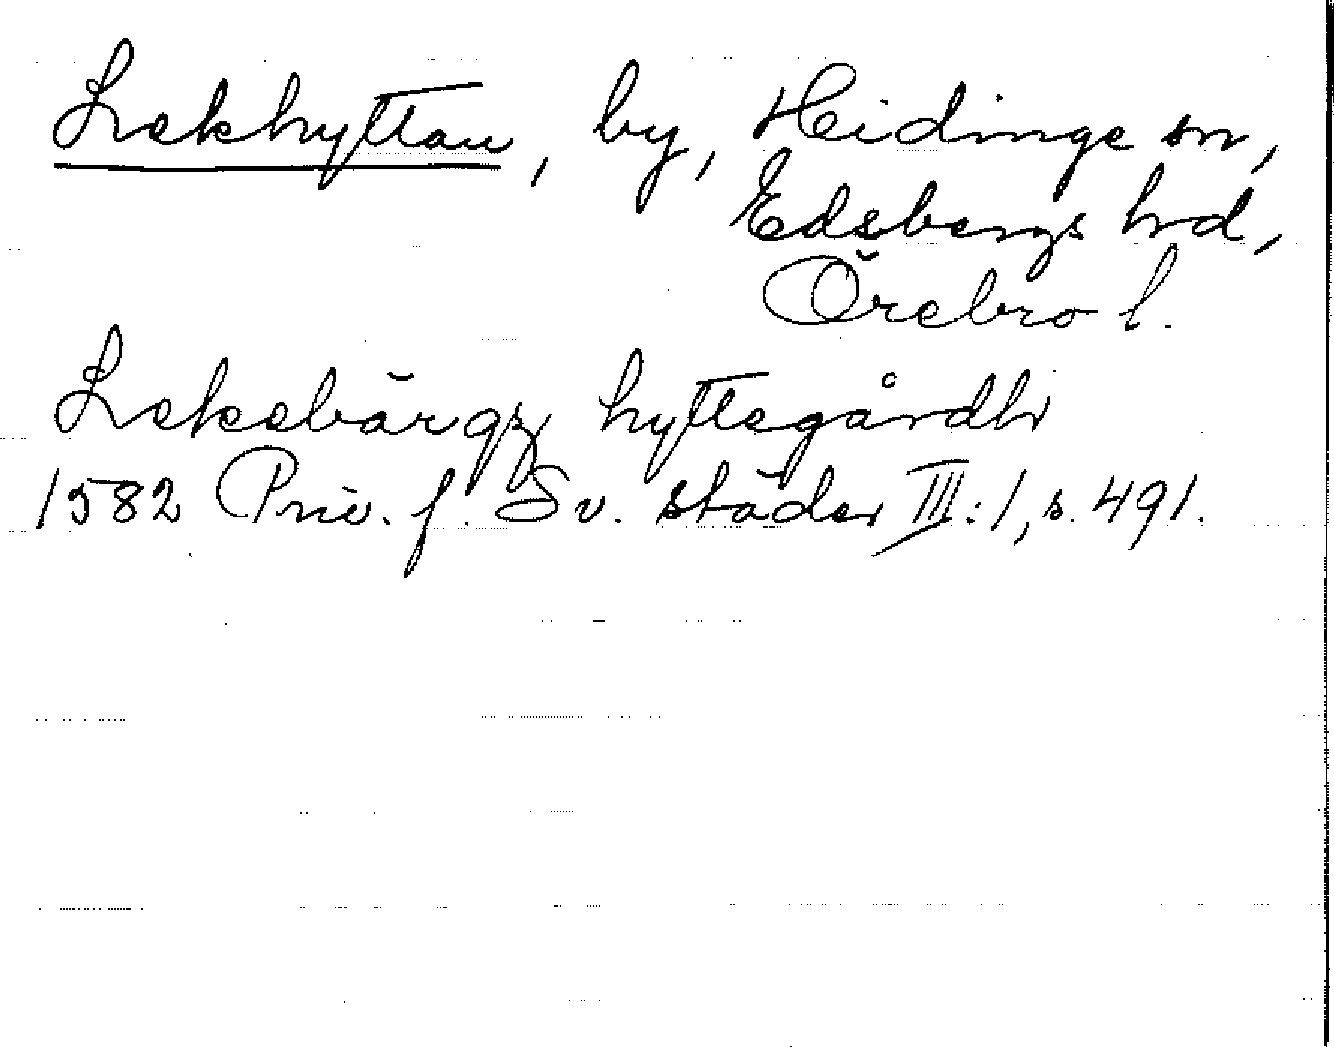 Lekhyttan, by, Hidinge sn,
Edsbergs hrd,
Örebro l.
Lekebärgz hyttegårdh
1582 Priv. f. Sv. städer III:1, s. 491.